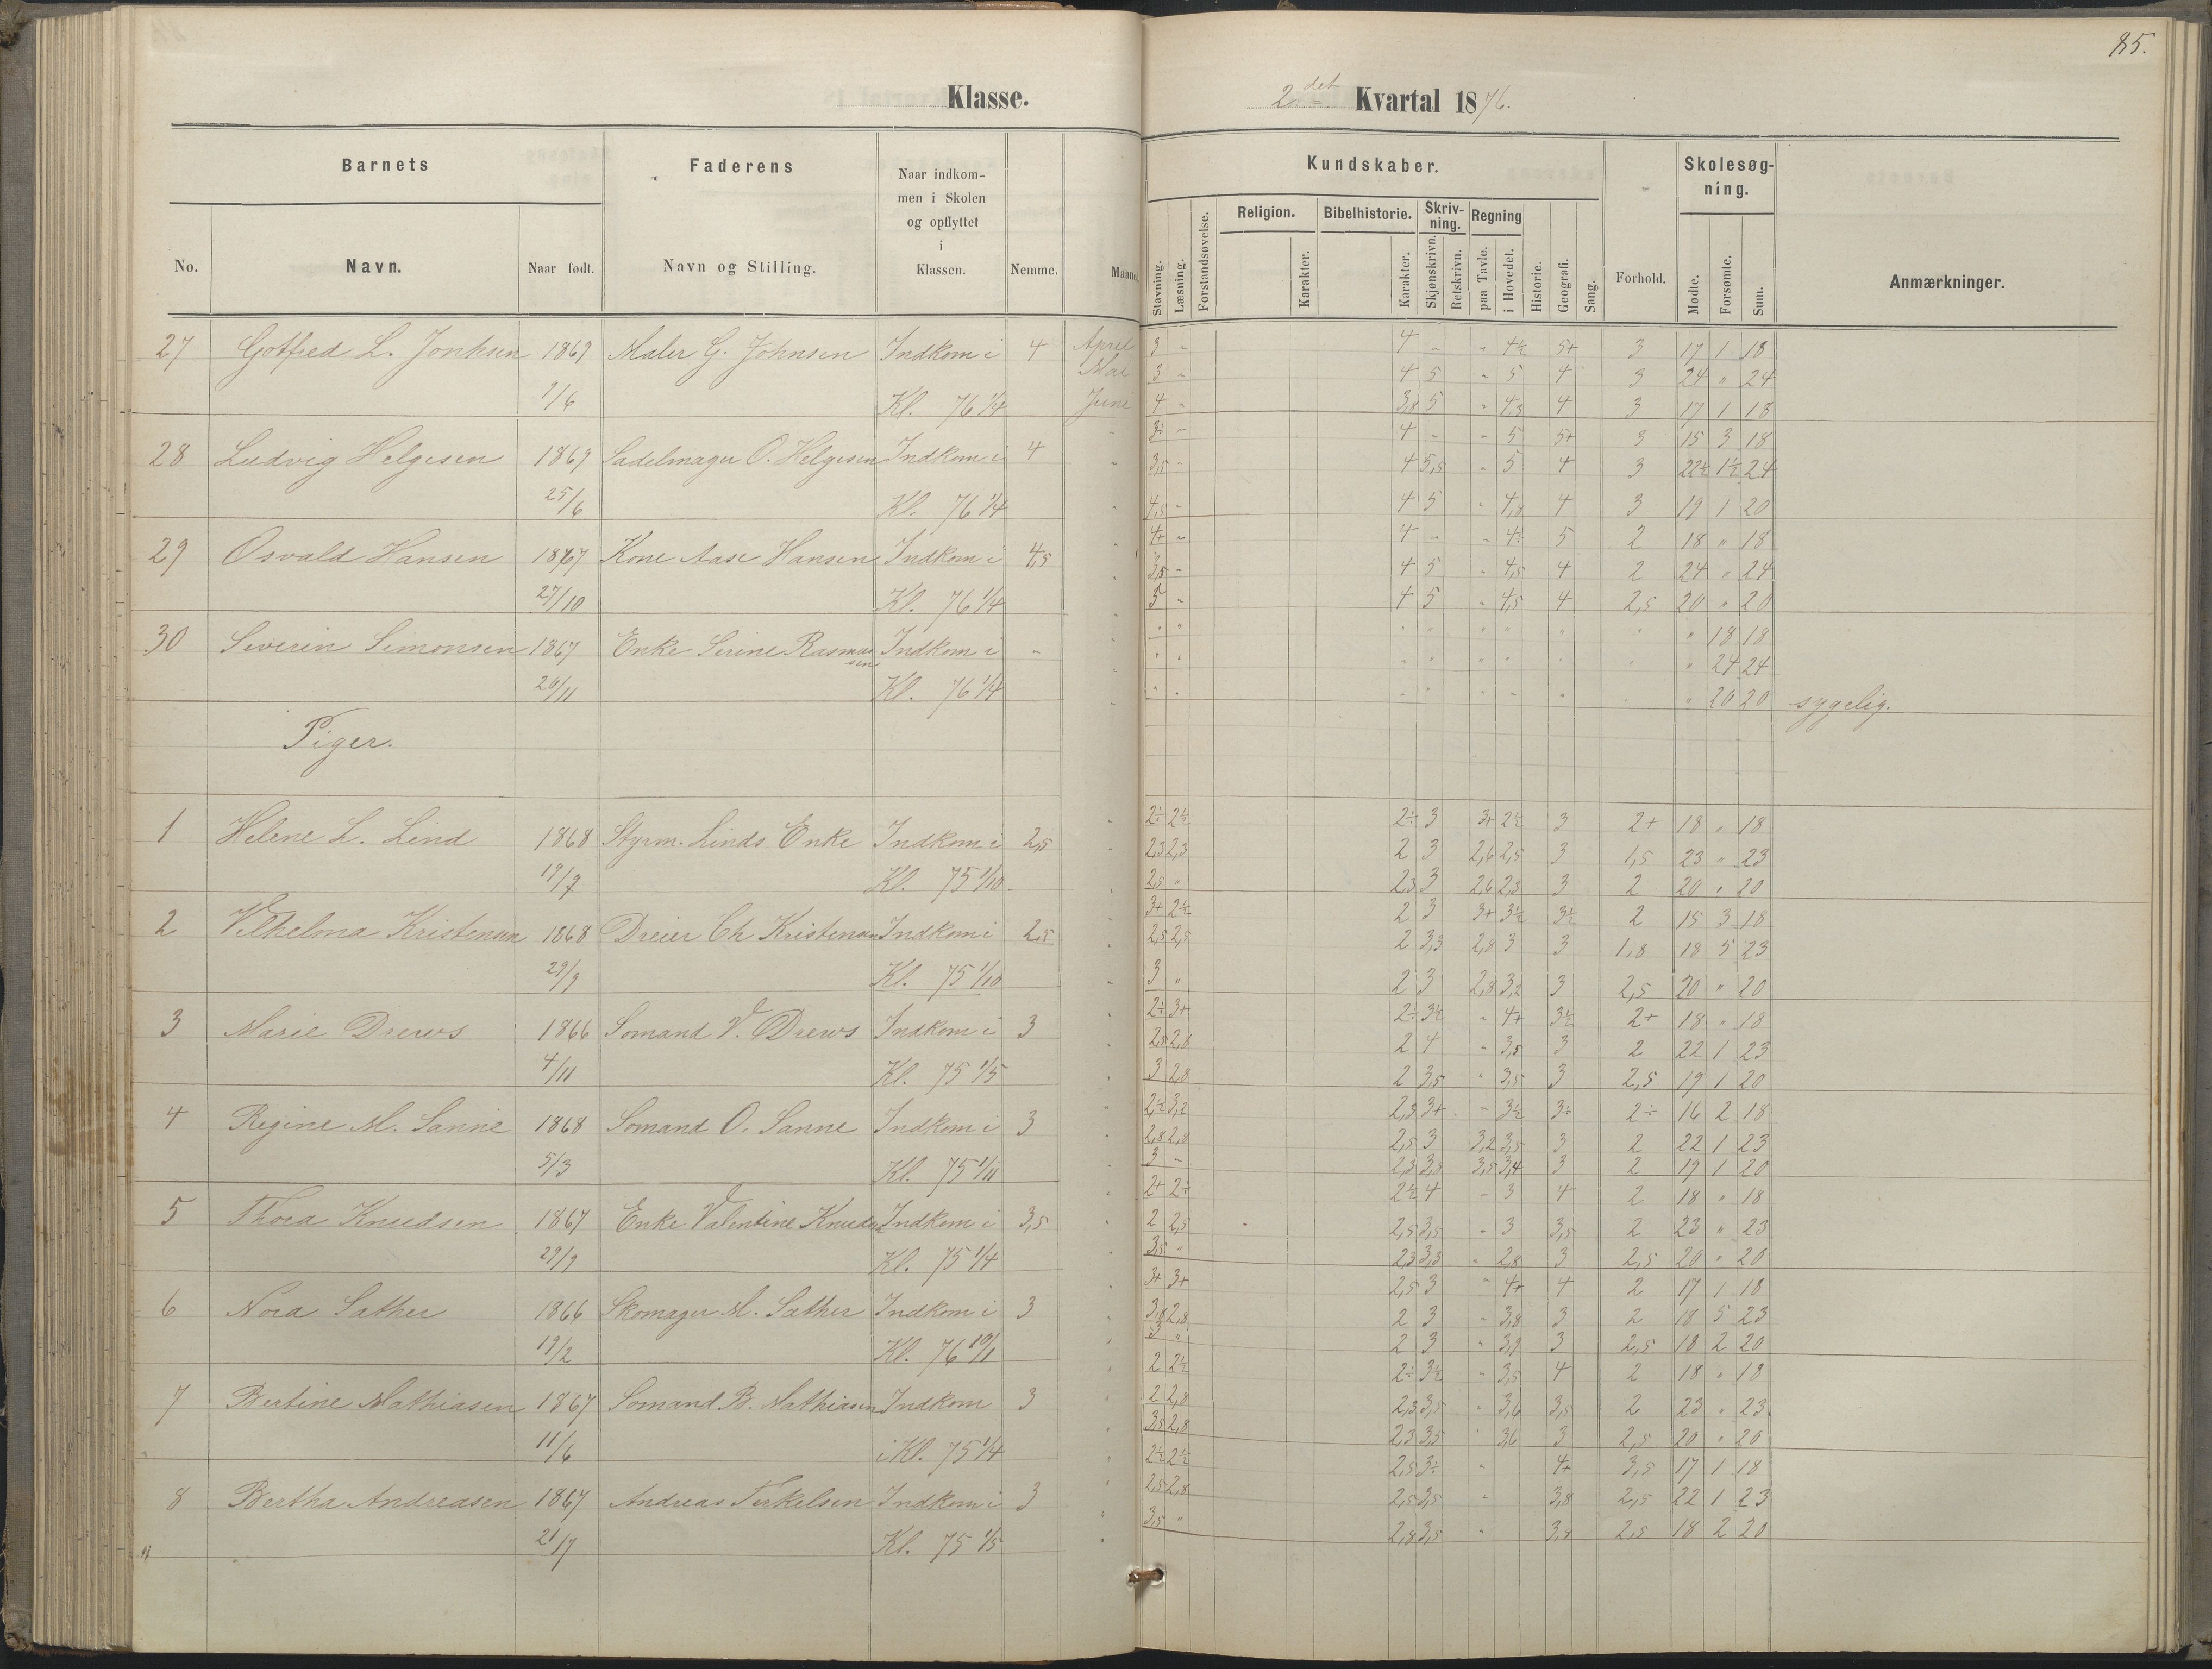 85.
Klasse.
2det Kvartal 1876.
Barnets
Faderens
Naar indkom-
men i Skolen
og opflyttet
i
Klassen.
No.
Navn.
Naar født.
Navn og Stilling.
Nemme.
Maaned
Kundskaber.
Skolesøg-
ning.
Stavning.
Læsning.
Forstandsøvelse.
Religion.
Karakter.
Bibelhistorie.
Karakter.
Skriv-
ning.
Skjønskrivn.
Retskrivn.
Regning
paa Tavle.
i Hovedet.
Historie.
Geografi.
Sang.
Forhold.
Mødte.
Forsømte.
Sum.
Anmærkninger.
27 Gotfred L. Jonhsen 1869 Maler G. Johnsen Indkom i 4 April 3 - 4 - - 4½ 5+ 3 17 1 18
Mai 3 - 4 5 - 5 4 3 24 " 24
1/6 Kl. 76 1/4 Juni 4 - 3,8 5 - 4,3 4 3 17 1 18
3÷ - 4 - - 5 5+ 3 15 3 18
28 Ludvig Helgesen 1869 Sadelmager O. Helgesen Indkom i 4 3,5 - 4 5,5 - 5 4 3 22½ 1½ 24
25/6 Kl. 76 1/4 4,5 - 4 5 - 4,8 4 3 19 1 20
4+ - 4 - - 4÷ 5 2 18 " 18
29 Osvald Hansen 1867 Kone Aase Hansen Indkom i 4,5 3,5 - 4 5 - 4,5 4 2 24 " 24
27/10 Kl. 76 1/4 5 - 4 5 - 4,5 4 2,5 20 " 20
" 18 18
30 Severin Simonsen 1867 Enke Serine Rasmus
sen Indkom i - " 24 24
20/11 Kl. 76 1/4 " 20 20 sygelig.
Piger.
2÷ 2½ 2÷ 3 3+ 2½ 3 2+ 18 " 18
1 Helene L. Lind 1868 Styrm. Linds Enke Indkom i 2,5 2,3 2,3 2 3 2,6 2,5 3 1,5 23 " 23
19/7 Kl. 75 1/10 2,5 " 2,3 3 2,6 2,3 3 2 20 " 20
3+ 2½ 2 3 3+ 3½ 3½ 2 15 3 18
2 Vilhelma Kristensen 1868 Dreier Ch Kristensen Indkom i 2,5 2,5 2,5 2 3,3 2,8 3 3 1,8 18 5 23
29/9 Kl. 75 1/10 3 " 2 3 2,8 3,2 3 2,5 20 " 20
2÷ 3+ 2÷ 3½ " 4+ 3½ 2+ 18 " 18
3 Marie Drews 1866 Somand V. Drews Indkom i 3 2,5 2,8 2 4 " 3,5 3 2 22 1 23
4/11 Kl. 75 1/5 3 2,8 2 3,5 " 3,5 3 2,5 19 1 20
2½ 3,2 2,3 3+ - 3½ 3÷ 2÷ 16 2 18
4 Regine M. Sanne 1868 Somand O. Sanne Indkom i 3 2,8 2,8 2,5 3 3,2 3,5 3 2 22 1 23
5/3 Kl. 75 1/11 3 - 2,3 3,3 3,5 3,4 3 2 19 1 20
2+ 2÷ 2½ 4 - 3 4 2 18 " 18
5 Thora Knudsen 1867 Enke Valentine Knudsen Indkom i 3,5 2 2,5 2,5 3,5 - 3 3,5 2 23 " 23
29/9 Kl. 75 1/4 3,5 " 2,3 3,3 " 2,8 3 2,5 20 " 20
3+ 3+ 2,5 3 " 4+ 4 2 17 1 18
6 Nora Sather 1866 Skomager M. Sather Indkom i 3 3,8 2,8 2 3 " 3,8 3 2 18 5 23
19/2 Kl. 76 10/1 3 " 2 3 " 3,9 3 2,5 18 2 20
2 2½ 2÷ 3½ " 3,5 4 2 18 " 18
7 Bertine Mathiasen 1867 Somand B. Mathiasen Indkom 3 2 2,8 2,3 3,5 " 3,6 3,5 2 23 " 23
11/6 i Kl. 75 1/4 3,5 2,8 2,3 3,5 " 3,6 3 2,5 20 " 20
2½ 2½ 2,5 3÷ " 4+ 3,5 17 1 18
8 Bertha Andreasen 1867 Andreas Terkelsen Indkom i 3 2,5 2,8 2,5 3,5 " 3,8 2,5 22 1 23
21/7 Kl. 75 1/5 3,5 " 2,8 3,5 " 3,8 2,5 18 2 20